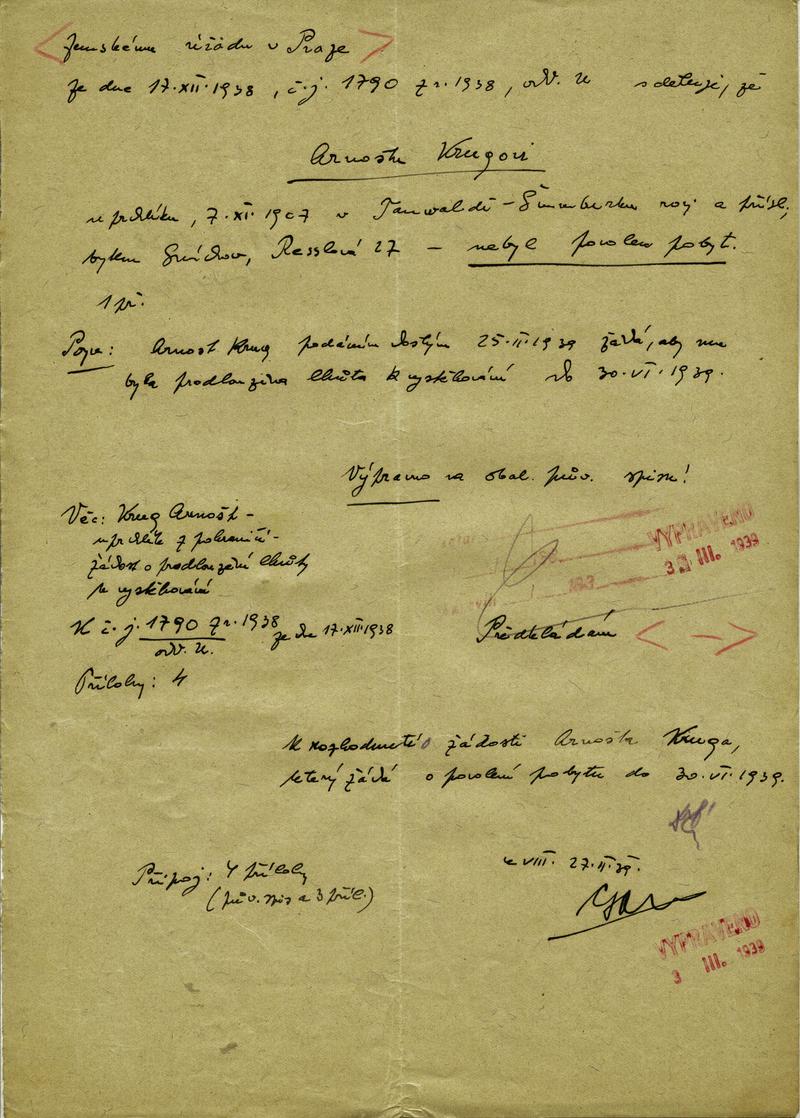 Zemskému úřadu v Praze
ze dne 17.XII.1938, č.j. 1790 z r. 1938, odd. U sděluji, že
Arnoštu Krugovi
uprchlíku, 7.XI.1907 v Tanwaldě-Šumburku nar. a přísl.,
bytem Smíchov, Resslova 27 – nebyl povolen pobyt.
1 př.
Pozn: Arnošt Krug podáním došlým 25.II.1939 žádá, aby mu
byla prodloužena lhůta k vystěhování do 30.VI.1939.
Výpravno na obal. pův. spisu!
Věc: Krug Arnošt -
uprchlík z pohraničí -
žádost o prodloužení lhůty
k vystěhování
VYPRAVENO
III. 1939
K č.j. 1790 z r. 1938 ze dne 17.XII.1938
odd. U.
Předkládám
Přílohy: 4
k rozhodnutí o žádosti Arnošta Kruga,
který žádá o povolení pobytu do 30.VI.1939.
Připoj: 4 přílohy
(pův. spis a 3 příl.)
VIII. 27.II.39.
VYPRAVENO
3 III. 1939